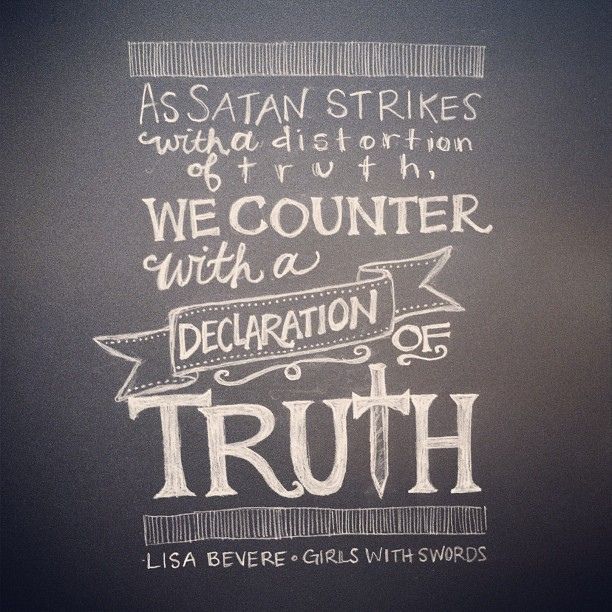 AS SATAN STRIKES
with a distortion
of truth,
WE COUNTER
with a
DECLARATION
OF
TRUTH
LISA BEVERE • GIRLS WITH SWORDS